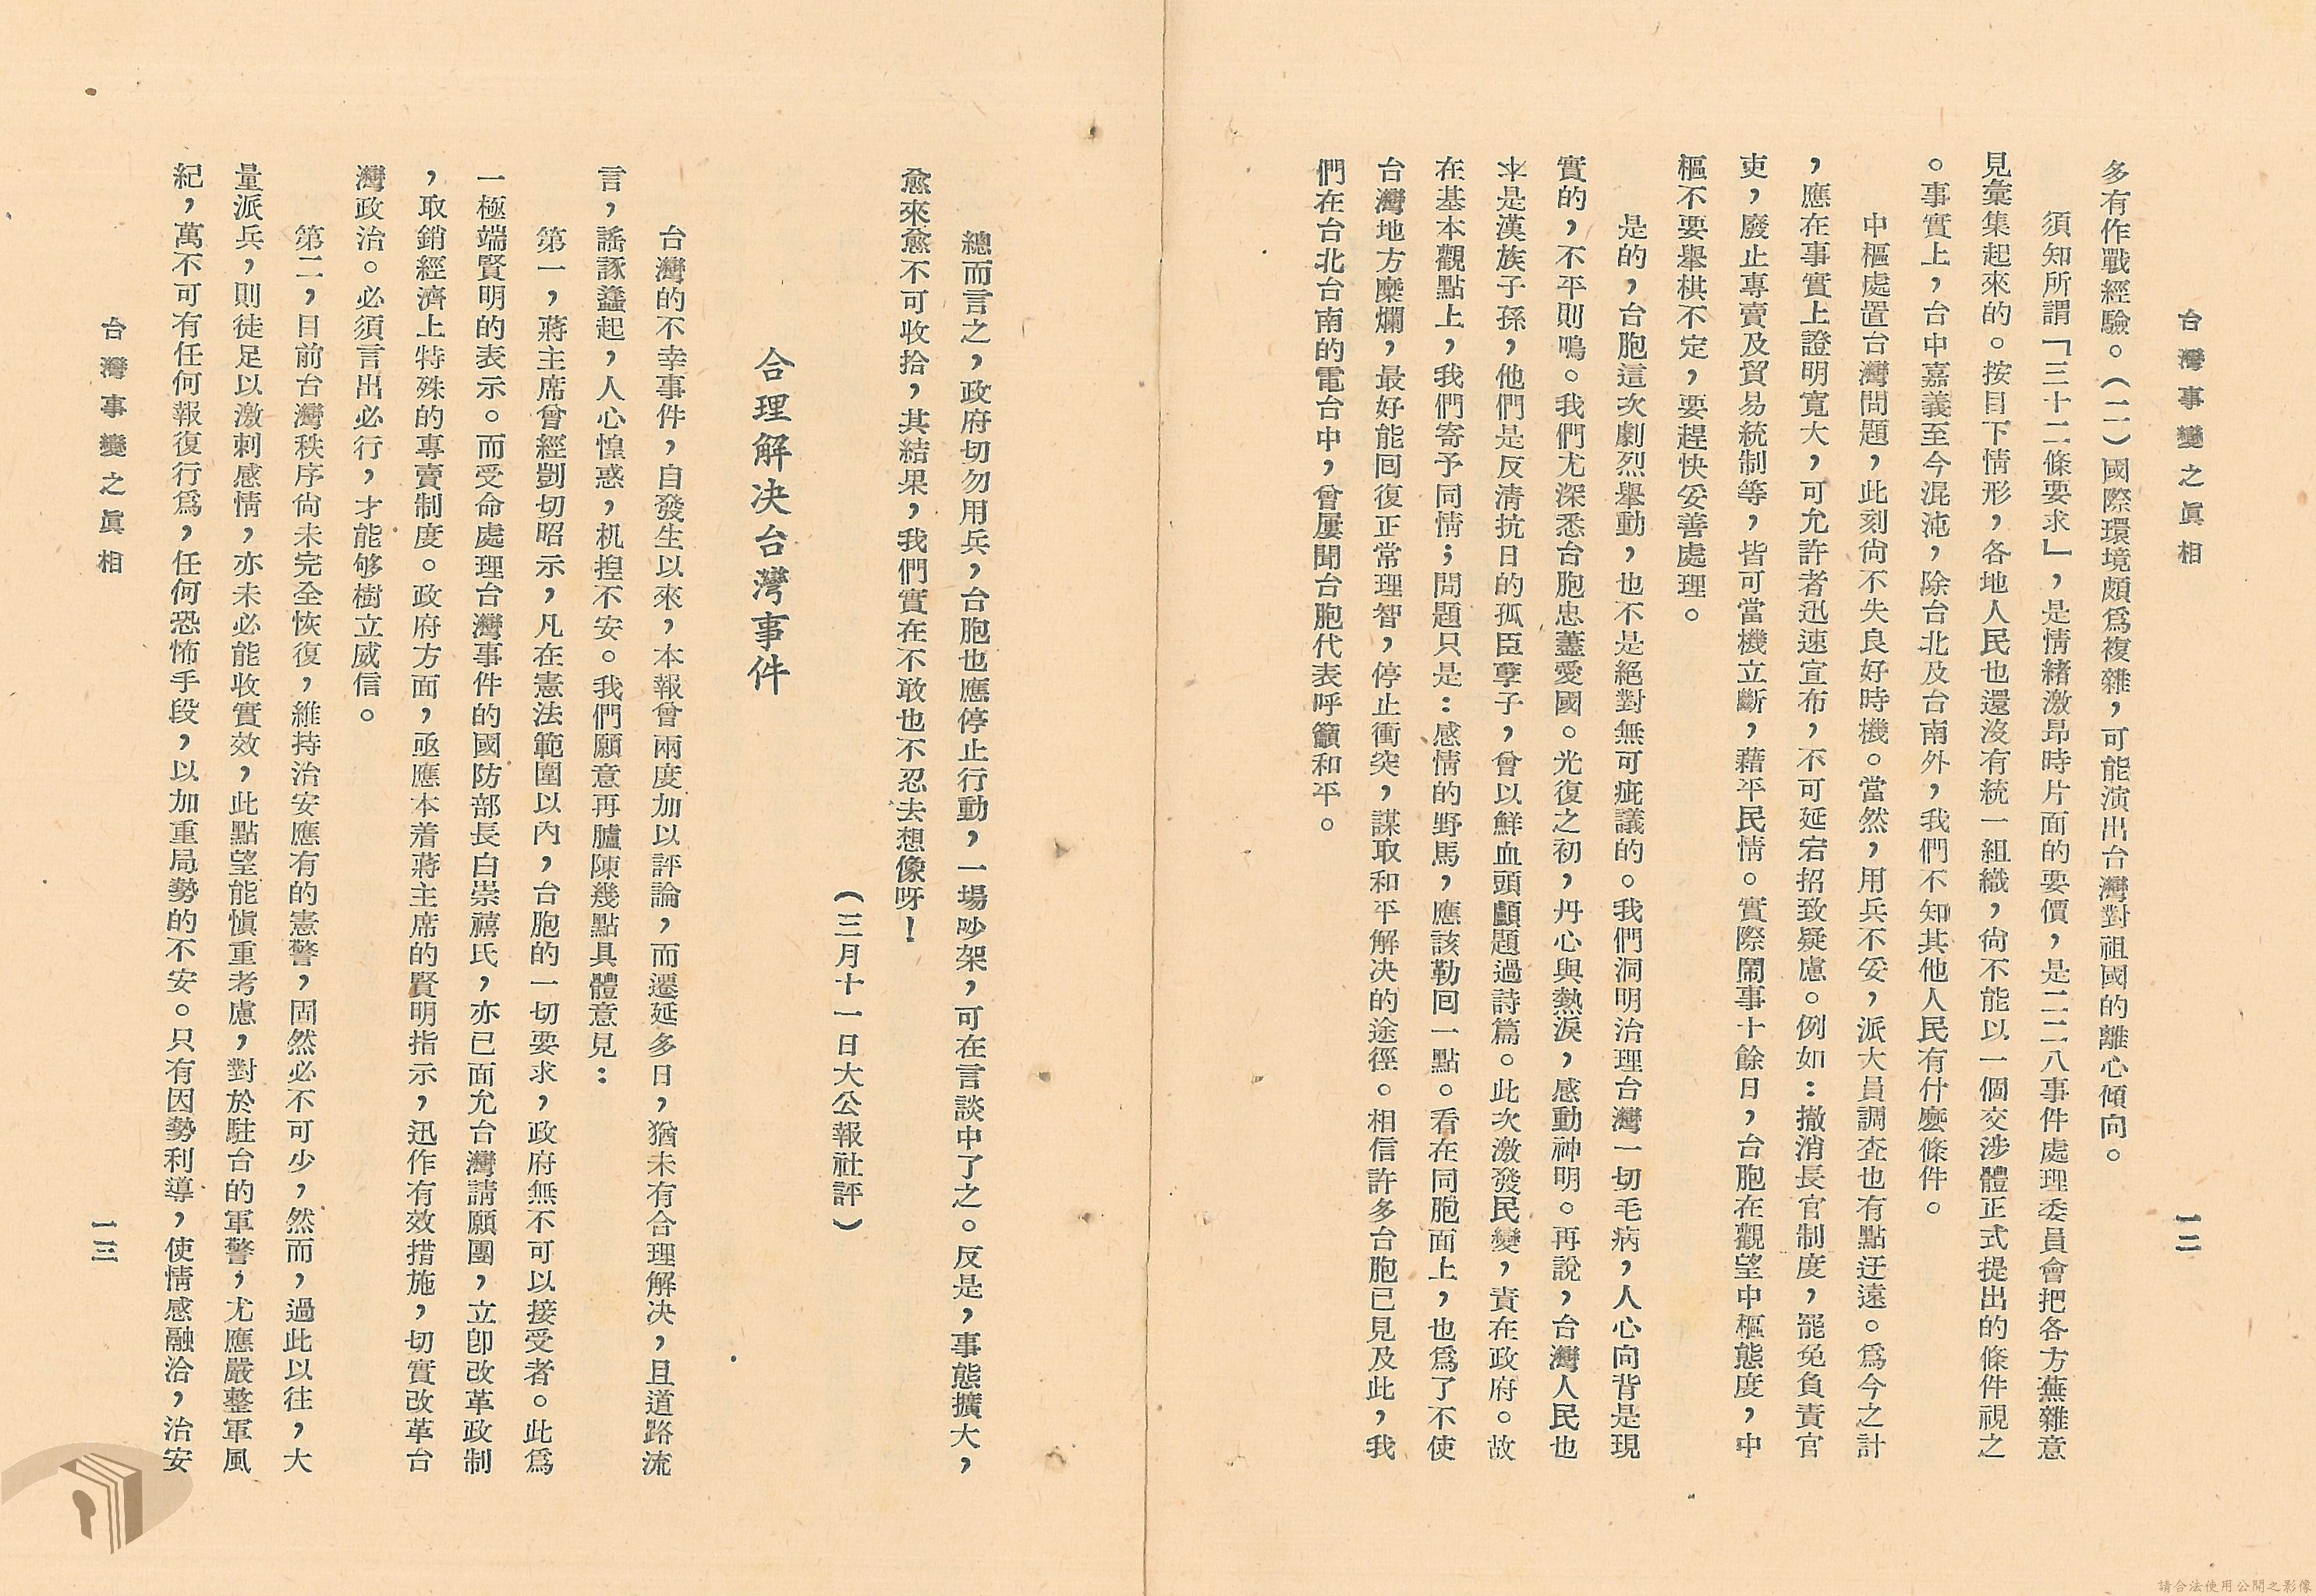 台灣事變之眞相
一二
多有作戰經驗。（二）國際環境頗爲複雜，可能演出台灣對祖國的離心傾向。
須知所謂「三十二條要求」，是情緒激昂時片面的要價，是二二八事件處理委員會把各方蕪雜意
見彙集起來的。按目下情形，各地人民也還沒有統一組織，尙不能以一個交涉體正式提出的條件視之
。事實上，台中嘉義至今混沌，除台北及台南外，我們不知其他人民有什麽條件。
中樞處置台灣問題，此刻尙不失良好時機。當然，用兵不妥，派大員調查也有點迂遠。爲今之計
，應在事實上證明寬大，可允許者迅速宣布，不可延宕招致疑慮。例如：撤消長官制度，罷免負責官
吏，廢止專賣及貿易統制等，皆可當機立斷，藉平民情。實際鬧事十餘日，台胞在觀望中樞態度，中
樞不要舉棋不定，要趕快妥善處理。
是的，台胞這次劇烈舉動，也不是絕對無可疵議的。我們洞明治理台灣一切毛病，人心向背是現
實的，不平則鳴。我們尤深悉台胞忠藎愛國。光復之初，丹心與熱淚，感動神明。再說，台灣人民也
是漢族子孫，他們是反淸抗日的孤臣孽子，曾以鮮血頭顱題過詩篇。此次激發民變，責在政府。故
在基本觀點上，我們寄予同情；問題只是：感情的野馬，應該勒囘一點。看在同胞面上，也爲了不使
台灣地方糜爛，最好能囘復正常理智，停止衝突，謀取和平解決的途徑。相信許多台胞已見及此，我
們在台北台南的電台中，曾屢聞台胞代表呼籲和平。
總而言之，政府切勿用兵，台胞也應停止行動，一場吵架，可在言談中了之。反是，事態擴大，
愈來愈不可收拾，其結果，我們實在不敢也不忍去想像呀！
（三月十一日大公報社評）
合理解決台灣事件
台灣的不幸事件，自發生以來，本報曾兩度加以評論，而遷延多日，猶未有合理解決，且道路流
言，謠諑蠭起，人心惶惑，杌揑不安。我們願意再臚陳幾點具體意見：
第一，蔣主席曾經剴切昭示，凡在憲法範圍以內，台胞的一切要求，政府無不可以接受者。此爲
一極端賢明的表示。而受命處理台灣事件的國防部長白崇禧氏，亦已面允台灣請願團，立卽改革政制
，取銷經濟上特殊的專賣制度。政府方面，亟應本着蔣主席的賢明指示，迅作有效措施，切實改革台
灣政治。必須言出必行，才能够樹立威信。
第二，目前台灣秩序尙未完全恢復，維持治安應有的憲警，固然必不可少，然而，過此以往，大
量派兵，則徒足以激刺感情，亦未必能收實效，此點望能愼重考慮，對於駐台的軍警，尤應嚴整軍風
紀，萬不可有任何報復行爲，任何恐怖手段，以加重局勢的不安。只有因勢利導，使情感融洽，治安
台灣事變之眞相
一三
請合法使用公開之影像